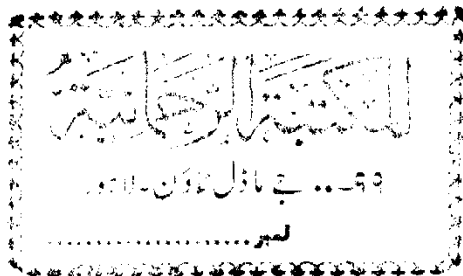 المکتبۃ الرحمانیۃ
۹۹... جے ماڈل ٹاؤن۔ لاہور
نمبر..............................